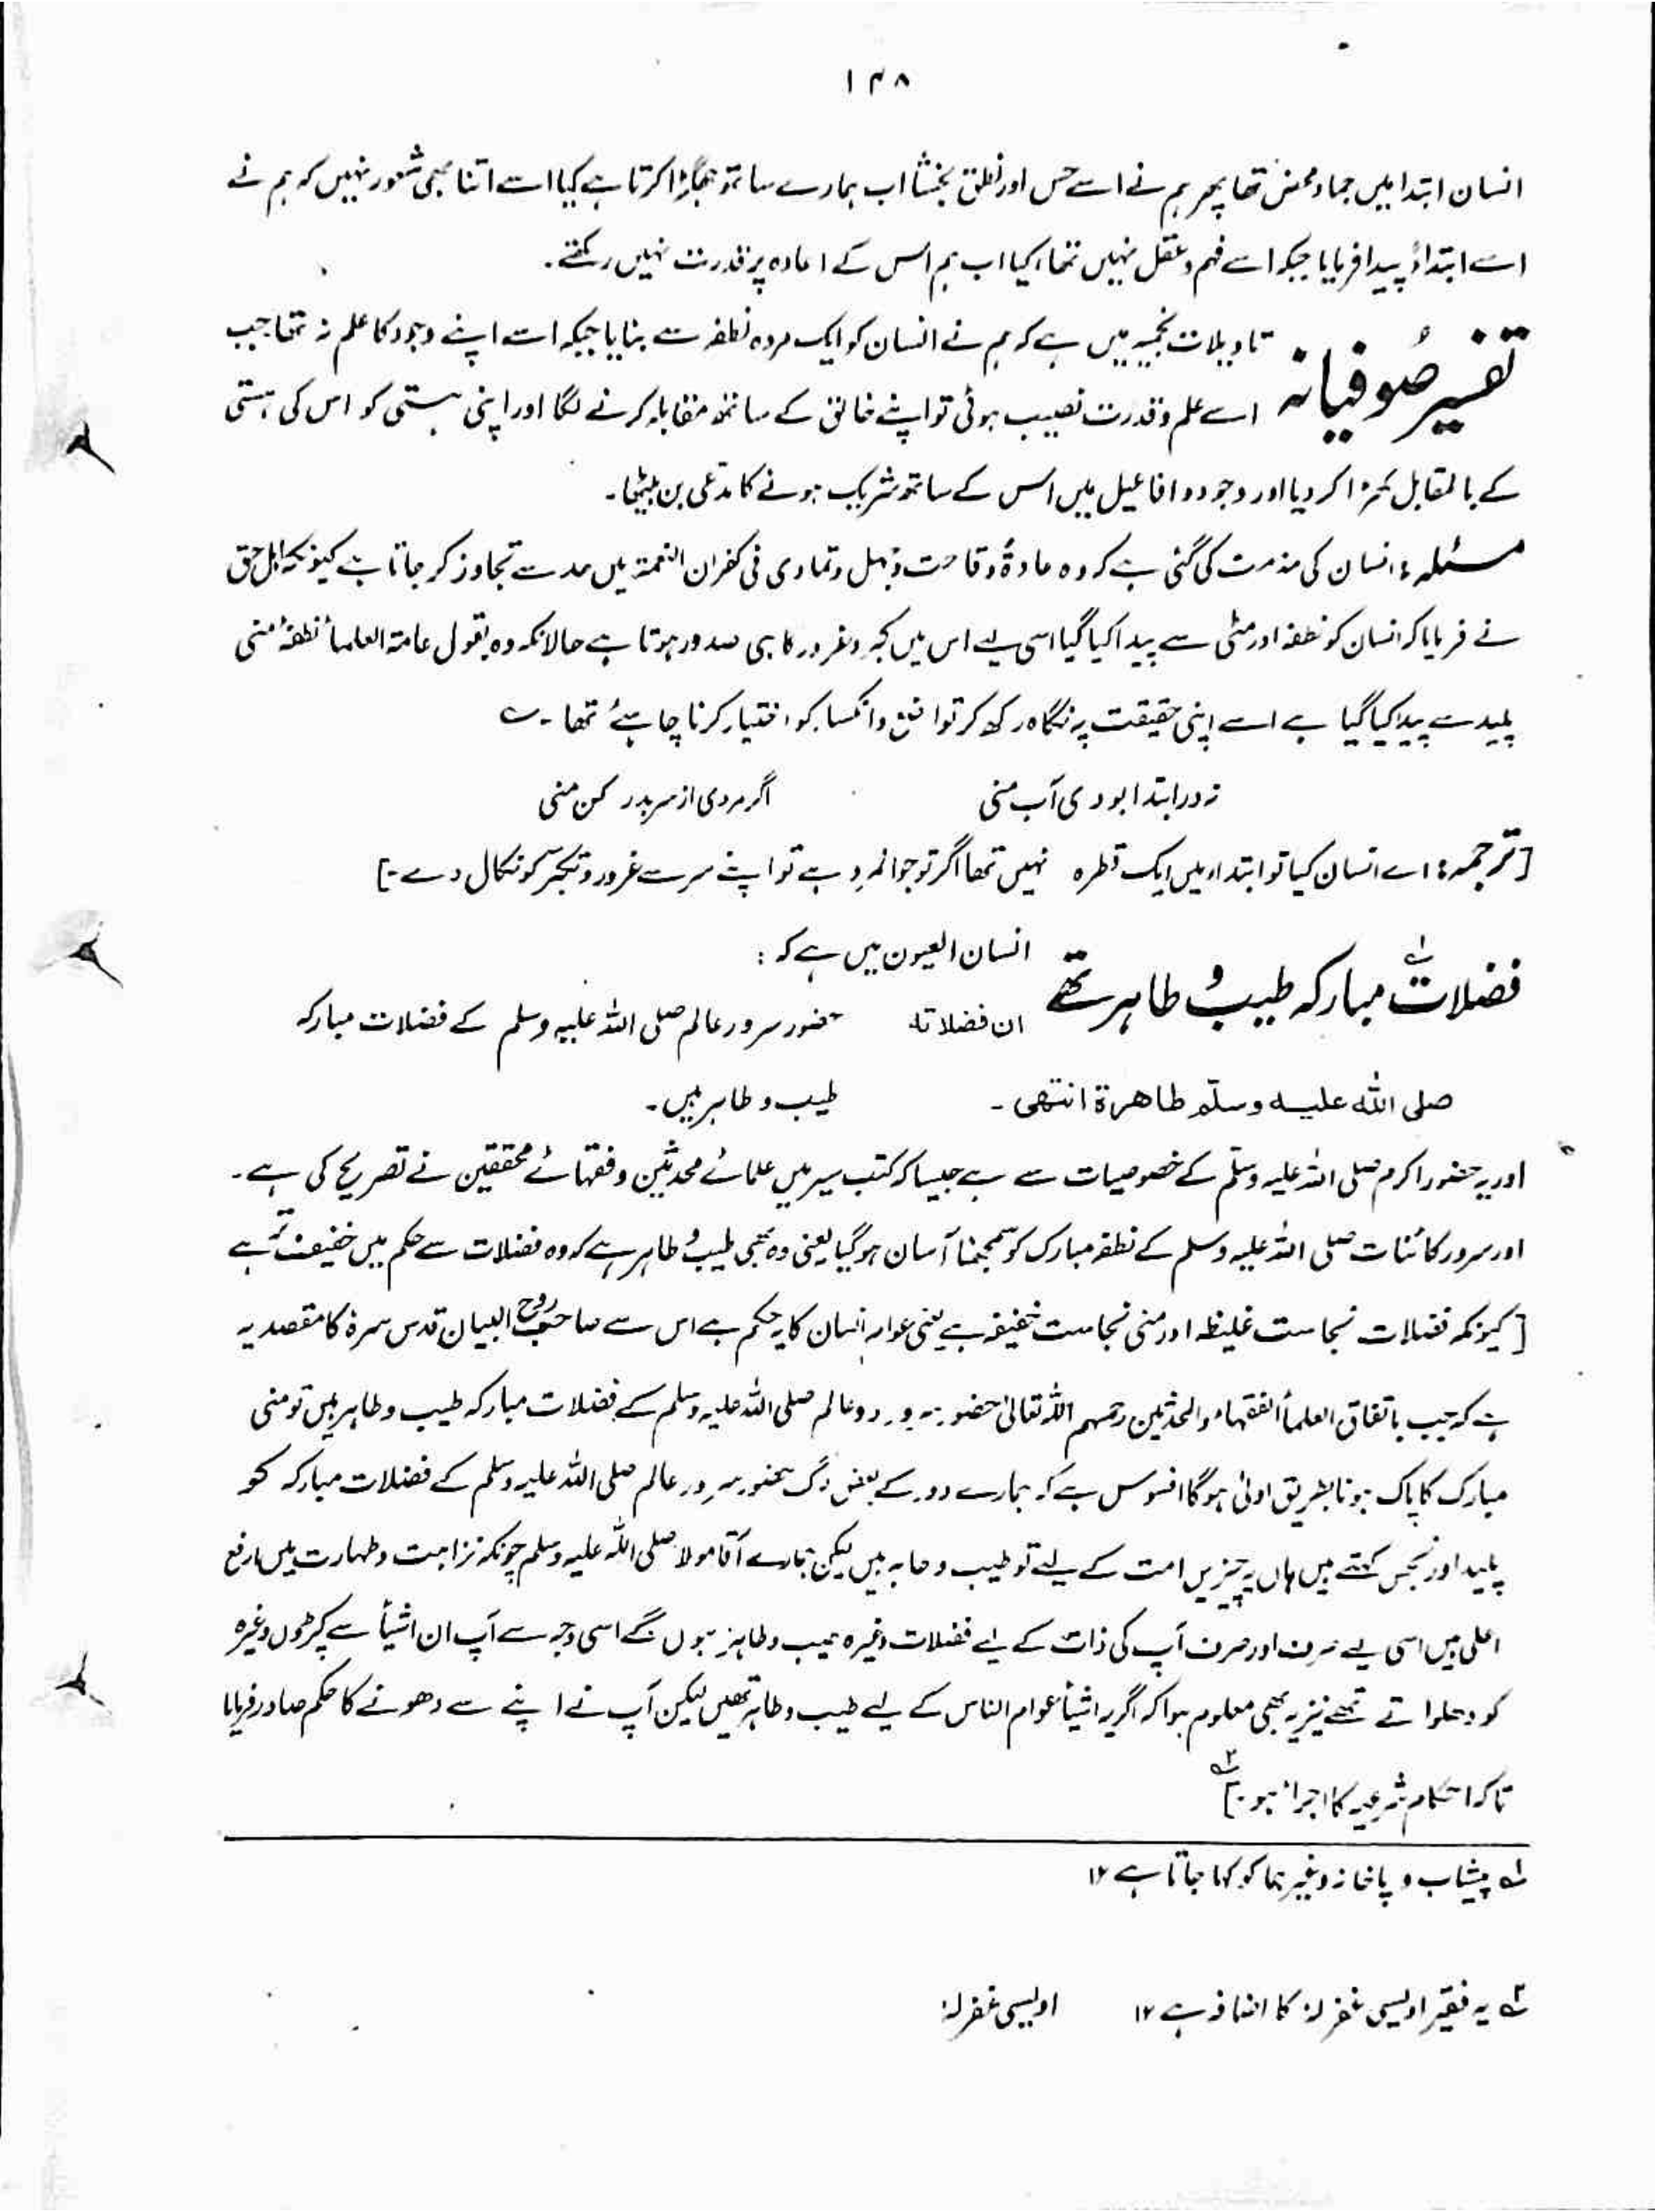 ۱۴۸
انسان ابتدا میں جماد محض تھا پھر ہم نے اسے حس اور نطق بخشا اب ہمارے ساتھ جھگڑا کرتا ہے کیا اسے اتنا بھی شعور نہیں کہ ہم نے
اسے ابتداءً پیدا فرمایا جبکہ اسے فہم و عقل نہیں تھا، کیا اب ہم اس کے اعادہ پر قدرت نہیں رکھتے۔
تفسیر صوفیانہ
تاویلات نجمیہ میں ہے کہ ہم نے انسان کو ایک مردہ نطفہ سے بنایا جبکہ اسے اپنے وجود کا علم نہ تھا جب
اسے علم و قدرت نصیب ہوئی تو اپنے خالق کے ساتھ مقابلہ کرنے لگا اور اپنی ہستی کو اس کی ہستی
کے بالمقابل کھڑا کر دیا اور وجود و افاعیل میں اس کے ساتھ شریک ہونے کا مدعی بن بیٹھا۔
مسئلہ : انسان کی مذمت کی گئی ہے کہ وہ عادۃً وقاحت و جہل و تمادی فی کفران النعمۃ میں حد سے تجاوز کر جاتا ہے کیونکہ اہل حق
نے فرمایا کہ انسان کو نطفہ اور مٹی سے پیدا کیا گیا اسی لیے اس میں کبر و غرور کا ہی صدور ہوتا ہے حالانکہ وہ بقول عامۃ العلماء نطفۂ منی
پلید سے پیدا کیا گیا ہے اسے اپنی حقیقت پہ نگاہ رکھ کر تواضع و انکسار کو اختیار کرنا چاہیئے تھا ۔ ؎
نہ در ابتدا بودی آب منی اگر مردی از سر بدر کن منی
[ترجمہ : اے انسان کیا تو ابتداء میں ایک قطرہ نہیں تھا اگر تو جوانمرد ہے تو اپنے سر سے غرور و تکبر کو نکال دے۔]
فضلات ؎۱ مبارکہ طیب و طاہر تھے
انسان العیون میں ہے کہ :
ان فضلاتہ حضور سرور عالم صلی اللہ علیہ وسلم کے فضلات مبارکہ
صلی اللہ علیہ وسلم طاھرۃ انتھی ۔ طیب و طاہر ہیں۔
اور یہ حضور اکرم صلی اللہ علیہ وسلم کے خصوصیات سے ہے جیسا کہ کتب سیر میں علمائے محدثین و فقہائے محققین نے تصریح کی ہے۔
اور سرور کائنات صلی اللہ علیہ وسلم کے نطفہ مبارک کو سمجھنا آسان ہو گیا یعنی وہ بھی طیب و طاہر ہے کہ وہ فضلات سے حکم میں خفیف تر ہے
[کیونکہ فضلات نجاست غلیظہ اور منی نجاست خفیفہ ہے یعنی عوام انسان کا یہ حکم ہے اس سے صاحب روح البیان قدس سرہٗ کا مقصد یہ
ہے کہ جب باتفاق العلماء الفقہاء والمحدثین رحمہم اللہ تعالیٰ حضور سرور دو عالم صلی اللہ علیہ وسلم کے فضلات مبارکہ طیب و طاہر ہیں تو منی
مبارک کا پاک ہونا بطریق اولیٰ ہو گا افسوس ہے کہ ہمارے دور کے بعض لوگ حضور سرور عالم صلی اللہ علیہ وسلم کے فضلات مبارکہ کو
پلید اور نجس کہتے ہیں ہاں یہ چیزیں امت کے لیے تو طیب و طاہر ہیں لیکن ہمارے آقا مولا صلی اللہ علیہ وسلم چونکہ نزاہت و طہارت میں ارفع
اعلی ہیں اسی لیے صرف اور صرف آپ کی ذات کے لیے فضلات وغیرہ طیب و طاہر نہ ہوں گے اسی وجہ سے آپ ان اشیاء سے کپڑوں وغیرہ
کو دھلواتے تھے نیز یہ بھی معلوم ہوا کہ اگر یہ اشیاء عوام الناس کے لیے طیب و طاہر تھیں لیکن آپ نے اپنے سے دھونے کا حکم صادر فرمایا
تاکہ احکام شرعیہ کا اجراء ہو۔] ؎۲
؎۱ پیشاب و پاخانہ وغیرہما کو کہا جاتا ہے ۱۲
؎۲ یہ فقیر اویسی غفرلہٗ کا اضافہ ہے ۱۲ اویسی غفرلہٗ